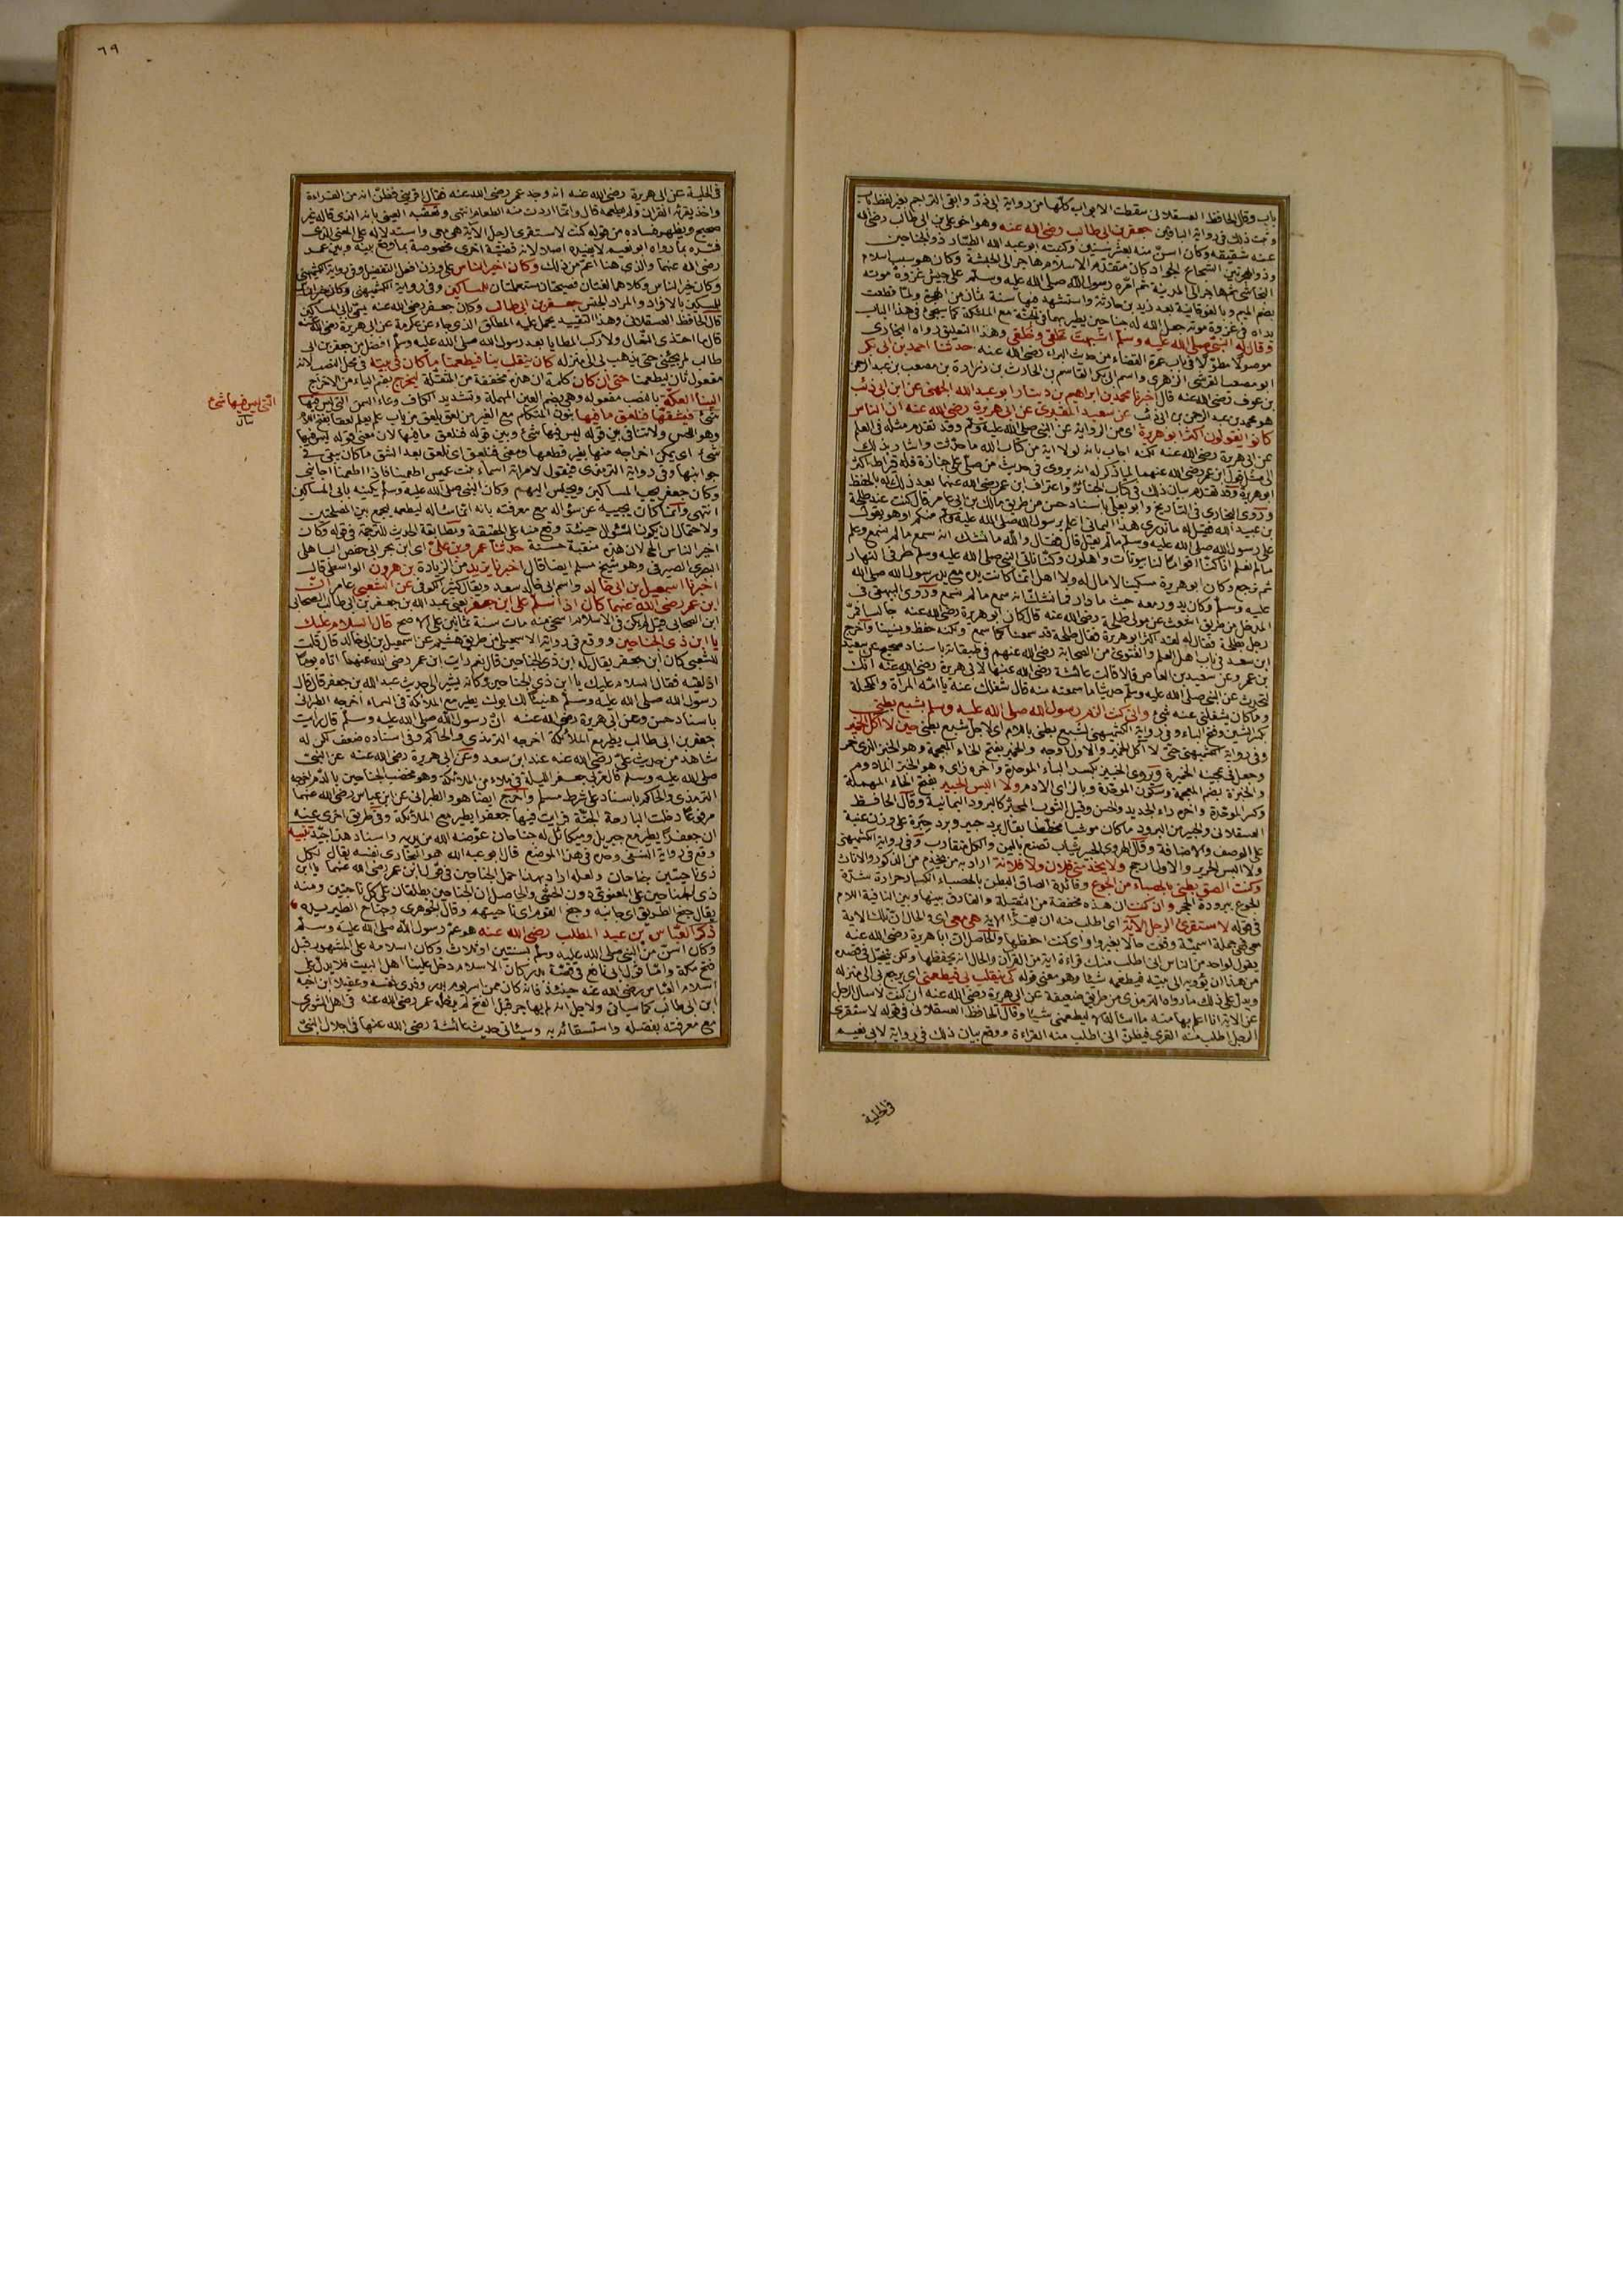 باب وقال الحافظ العسقلانى سقطت الابواب كلّها من رواية ابى ذرّ وابقى التراجم بغير لفظ باب
وثبت ذلك فى رواية الباقين جعفر بن ابى طالب رضى الله عنه وهو اخو على بن ابى طالب رضى الله
عنه شقيقه وكان اسنّ منه بعشر سنين وكنيته ابو عبد الله الطيّار ذو الجناحين
وذو الهجرتين الشجاع الجواد كان متقدّم الاسلام هاجر الى الحبشة وكان هو سبب اسلام
النجاشى ثم هاجر الى المدينة ثم امّره رسول الله صلى الله عليه وسلم على جيش غزوة موته
بضم الميم وبالفوقانية بعد زيد بن حارثة واستشهد فيها سنة ثمان من الهجرة ولمّا قطعت
يداه فى غزوة موته جعل الله له جناحين يطير بهما فى الجنّة مع الملئكة كما سيجئ فى هذا الباب
وقال له النبى صلى الله عليه وسلم اشبهت خلقى وخُلقى وهذا التعليق رواه البخارى
موصولا مطوّلا فى باب عمرة القضاء من حديث البراء رضى الله عنه حدثنا احمد بن ابى بكر
ابو مصعب القرشى الزهرى واسم ابى بكر القاسم بن الحارث بن زرارة بن مصعب بن عبد الرحمن
بن عوف رضى الله عنه قال اخبرنا محمد بن ابراهيم بن دينار ابو عبد الله الجهنى عن ابن ابى ذئب
هو محمد بن عبد الرحمن بن ابى ذئب عن سعيد المقبرى عن ابى هريرة رضى الله عنه ان الناس
كانوا يقولون اكثر ابو هريرة اى من الرواية عن النبى صلى الله عليه وسلم وقد تقدم مثله فى العلم
عن ابى هريرة رضى الله عنه لكنه اجاب بانه لولا اية من كتاب الله ما حدّثت واشار بذلك
الى مثل قول ابن عمر رضى الله عنهما لما ذكر له انه يروى فى حديث من صلى على جنازة فله قيراط اكثر
ابو هريرة وقد تقدم بيان ذلك فى كتاب الجنائز واعتراف ابن عمر رضى الله عنهما بعد ذلك له بالحفظ
وروى البخارى فى التاريخ وابو يعلى باسناد حسن من طريق مالك بن ابى عامر قال كنت عند طلحة
بن عبيد الله فقيل له ما ندرى هذا اليمانى اعلم برسول الله صلى الله عليه وسلم منكم او هو يقول
على رسول الله صلى الله عليه وسلم ما لم يقل قال فقال والله ما نشك انه سمع ما لم نسمع وعلم
ما لم نعلم انا كنّا اقواما لنا بيوتات واهلون وكنّا ناتى النبى صلى الله عليه وسلم طرفى النهار
ثم نرجع وكان ابو هريرة مسكينا لا مال له ولا اهل انما كانت يده مع يد رسول الله صلى الله
عليه وسلم وكان يدور معه حيث ما دار فما نشك انه سمع ما لم نسمع وروى البيهقى فى
المدخل من طريق اشعث عن مولى طلحة رضى الله عنه قال كان ابو هريرة رضى الله عنه جالسا فمرّ
رجل بطلحة فقال له لقد اكثر ابو هريرة فقال طلحة قد سمعنا كما سمع ولكنه حفظ ونسينا واخرج
ابن سعد فى باب اهل العلم والفتوى من الصحابة رضى الله عنهم فى طبقاته باسناد صحيح عن سعيد
بن عمرو عن سعيد بن العاص قال قالت عائشة رضى الله عنها لابى هريرة رضى الله عنه انك
لتحدث عن النبى صلى الله عليه وسلم حديثا ما سمعته منه قال شغلك عنه يا امّه المرآة والمكحلة
وما كان يشغلنى عنه شئ وانى كنت الزم رسول الله صلى الله عليه وسلم بشبع بطنى
بكسر الشين وفتح الباء وفى رواية الكشميهنى لشبع بطنى باللام اى لاجل شبع بطنى حين لا آكل الخمير
وفى رواية الكشميهنى حتى لا آكل الخمير والاول اوجه والخمير بفتح الخاء المعجمة وهو الخبز الذى خمر
وجعل فى عجينه الخميرة ويروى الخبيز بكسر الباء الموحدة وآخره زاى وهو الخبز المادوم
والخبزة بضم المعجمة وسكون الموحّدة وبالزاى الادم ولا البس الحبير بفتح الحاء المهملة
وكسر الموحّدة وآخره راء الجديد والحسن وقيل الثوب المحبّر كالبرود اليمانية وقال الحافظ
العسقلانى والحبير من البرود ما كان موشيا مخططا يقال برد حبير وبرد حِبَرة على وزن عنبة
على الوصف والاضافة وقال الهروى الحبير ثياب تصنع باليمن والكل متقارب وفى رواية الكشميهنى
ولا البس الحرير والاول ارجح ولا يخدمنى فلان ولا فلانة اراد به من يخدم من الذكور والاناث
وكنت الصق بطنى بالحصباء من الجوع وفائدة الصاق البطن بالحصباء انكسار حرارة شدّة
الجوع ببرودة الحجر وان كنت ان هذه مخففة من المثقلة والفارق بينها وبين النافية اللام
فى قوله لاستقرئ الرجل الآية اى اطلب منه ان يقرئنى الآية هى معى اى والحال ان تلك الاية
معى فهى جملة اسمية وقعت حالا بغير واو اى كنت احفظها والحاصل ان ابا هريرة رضى الله عنه
يقول لواحد من الناس انى اطلب منك قراءة اية من القرآن والحال انه يحفظها ولكن يتخيّل فى قصده
من هذا ان يؤديه الى بيته فيطعمه شيئا وهو معنى قوله كى ينقلب بى فيطعمنى اى يرجع بى الى منزله
ويدل على ذلك ما رواه الترمذى من طريق ضعيفة عن ابى هريرة رضى الله عنه ان كنت لاسال الرجل
عن الاية انا اعلم بها منه ما اساله الا ليطعمنى شيئا وقال الحافظ العسقلانى فى قوله لاستقرى
الرجل اطلب منه القرى فيظنّ انى اطلب منه القراءة ووقع بيان ذلك فى رواية لابى نعيم
فى الحلية
٦٩
فى الحلية عن ابى هريرة رضى الله عنه انه وجد عمر رضى الله عنه فقال اقرينى فظنّ انه من القراءة
واخذ يقرئه القرآن ولم يطعمه قال وانما اردت منه الطعام انتهى وتعقبه العينى بانه الذى قاله غير
صحيح ويظهر فساده من قوله كنت لاستقرئ الرجل الآية هى معى واستدلاله على المعنى الذى
فسّره بما رواه ابو نعيم لا يفيده اصلا لانه قضيّة اخرى مخصوصة بما وقع بينه وبين عمر
رضى الله عنهما والذى هنا اعمّ من ذلك وكان اخير الناس على وزن افعل التفضيل وفى رواية الكشميهنى
وكان خير الناس وكلاهما لغتان فصيحتان مستعملتان للمساكين وفى رواية الكشميهنى وكان خير الناس
للمسكين بالافراد والمراد الجنس جعفر بن ابى طالب وكان جعفر رضى الله عنه يسمّى بابى المساكين
قال الحافظ العسقلانى وهذا التقييد يحمل عليه المطلق الذى جاء عن عكرمة عن ابى هريرة رضى الله عنه
قال ما احتذى النعال ولا ركب المطايا بعد رسول الله صلى الله عليه وسلم افضل من جعفر بن ابى
طالب لم يجبنى حتى يذهب بى الى منزله كان ينقلب بنا فيطعمنا ما كان فى بيته فى محل النصب لانه
مفعول ثان ليطعمنا حتى ان كان كلمة ان هذه مخففة من المثقلة ليخرج بضم الياء من الاخراج
الينا العكّة بالنصب مفعوله وهى بضم العين المهملة وتشديد الكاف وعاء السمن التى ليس فيها
شئ فيشقها فنلعق ما فيها بنون المتكلم مع الغير من لعق يلعق من باب علم يعلم لعقا بفتح اللام
وهو اللحس ولا تنافى بين قوله ليس فيها شئ وبين قوله فنلعق ما فيها لان معنى قوله ليس فيها
شئ اى يمكن اخراجه منها بغير قطعها ومعنى فنلعق اى نلعق بعد الشق ما كان بقى فى
جوانبها وفى رواية الترمذى فيقول لامراته اسماء بنت عميس اطعمينا فاذا اطعمتنا اجابنى
وكان جعفر يحب المساكين ويجلس اليهم وكان النبى صلى الله عليه وسلم يكنيه بابى المساكين
انتهى وانما كان يجيبه عن سؤاله مع معرفته بانه انما ساله ليطعمه ليجمع بين المصلحتين
ولاحتمال ان يكون السؤال حينئذ وقع منه على الحقيقة ومطابقة الحديث للترجمة فى قوله وكان
اخير الناس الخ لان هذه منقبة حسنة حدثنا عمرو بن على اى ابن بحر ابى حفص الباهلى
البصرى الصيرفى وهو شيخ مسلم ايضا قال اخبرنا يزيد من الزيادة بن هرون الواسطى قال
اخبرنا اسمعيل بن ابى خالد واسم ابى خالد سعد ويقال كثير الكوفى عن الشعبى عامر ان
ابن عمر رضى الله عنهما كان اذا سلم على ابن جعفر يعنى عبد الله بن جعفر بن ابى طالب الصحابى
ابن الصحابى قيل لم يكن فى الاسلام اسخى منه مات سنة ثمانين على الاصح قال السلام عليك
يا ابن ذى الجناحين ووقع فى رواية الاسمعيلى من طريق هشيم عن اسمعيل بن ابى خالد قال قلت
للشعبى كان ابن جعفر يقال له ابن ذى الجناحين قال نعم رايت ابن عمر رضى الله عنهما اتاه يوما
او لقيه فقال السلام عليك يا ابن ذى الجناحين وكانه يشير الى حديث عبد الله بن جعفر قال قال
رسول الله صلى الله عليه وسلم هنيئا لك ابوك يطير مع الملائكة فى السماء اخرجه الطبرانى
باسناد حسن وعن ابى هريرة رضى الله عنه ان رسول الله صلى الله عليه وسلم قال رايت
جعفر بن ابى طالب يطير مع الملائكة اخرجه الترمذى والحاكم وفى اسناده ضعف لكن له
شاهد من حديث علىّ رضى الله عنه عند ابن سعد وعن ابى هريرة رضى الله عنه عن النبى
صلى الله عليه وسلم قال مرّ بى جعفر الليلة فى ملاء من الملائكة وهو مخضب الجناحين بالدم اخرجه
الترمذى والحاكم باسناد على شرط مسلم واخرج ايضا هو والطبرانى عن ابن عباس رضى الله عنهما
مرفوعا دخلت البارحة الجنّة فرايت فيها جعفرا يطير مع الملائكة وفى طريق اخرى عنه
ان جعفرا يطير مع جبريل وميكائل له جناحان عوّضه الله من يديه واسناد هذا جيّد تنبيه
وقع فى رواية النسفى وحده فى هذا الموضع قال ابو عبد الله هو البخارى نفسه يقال لكل
ذى ناحيتين جناحان ولعله اراد بهذا حمل الجناحين فى قول ابن عمر رضى الله عنهما يا ابن
ذى الجناحين على المعنوى دون الحسّى والحاصل ان الجناحين يطلقان على كل ناحيتين ومنه
يقال جنح الطريق اى جانبه وجنح القوم اى ناحيتهم وقال الجوهرى وجناح الطير يده
ذكر العبّاس بن عبد المطلب رضى الله عنه هو عمّ رسول الله صلى الله عليه وسلم
وكان اسنّ من النبى صلى الله عليه وسلم بسنتين او ثلاث وكان اسلامه على المشهور قبل
فتح مكة وامّا قول ابى رافع فى قصّة بدر كان الاسلام دخل علينا اهل البيت فلا يدل على
اسلام العباس رضى الله عنه حينئذ فانه كان ممن اسر يوم بدر وفدى نفسه وعقيلا ابن اخيه
ابن ابى طالب كما سياتى ولاجل انه لم يهاجر قبل الفتح لم يدخله عمر رضى الله عنه فى اهل الشورى
مع معرفته بفضله واستسقائه به وسياتى حديث عائشة رضى الله عنها فى اجلال النبىّ
التى ليس فيها شئ